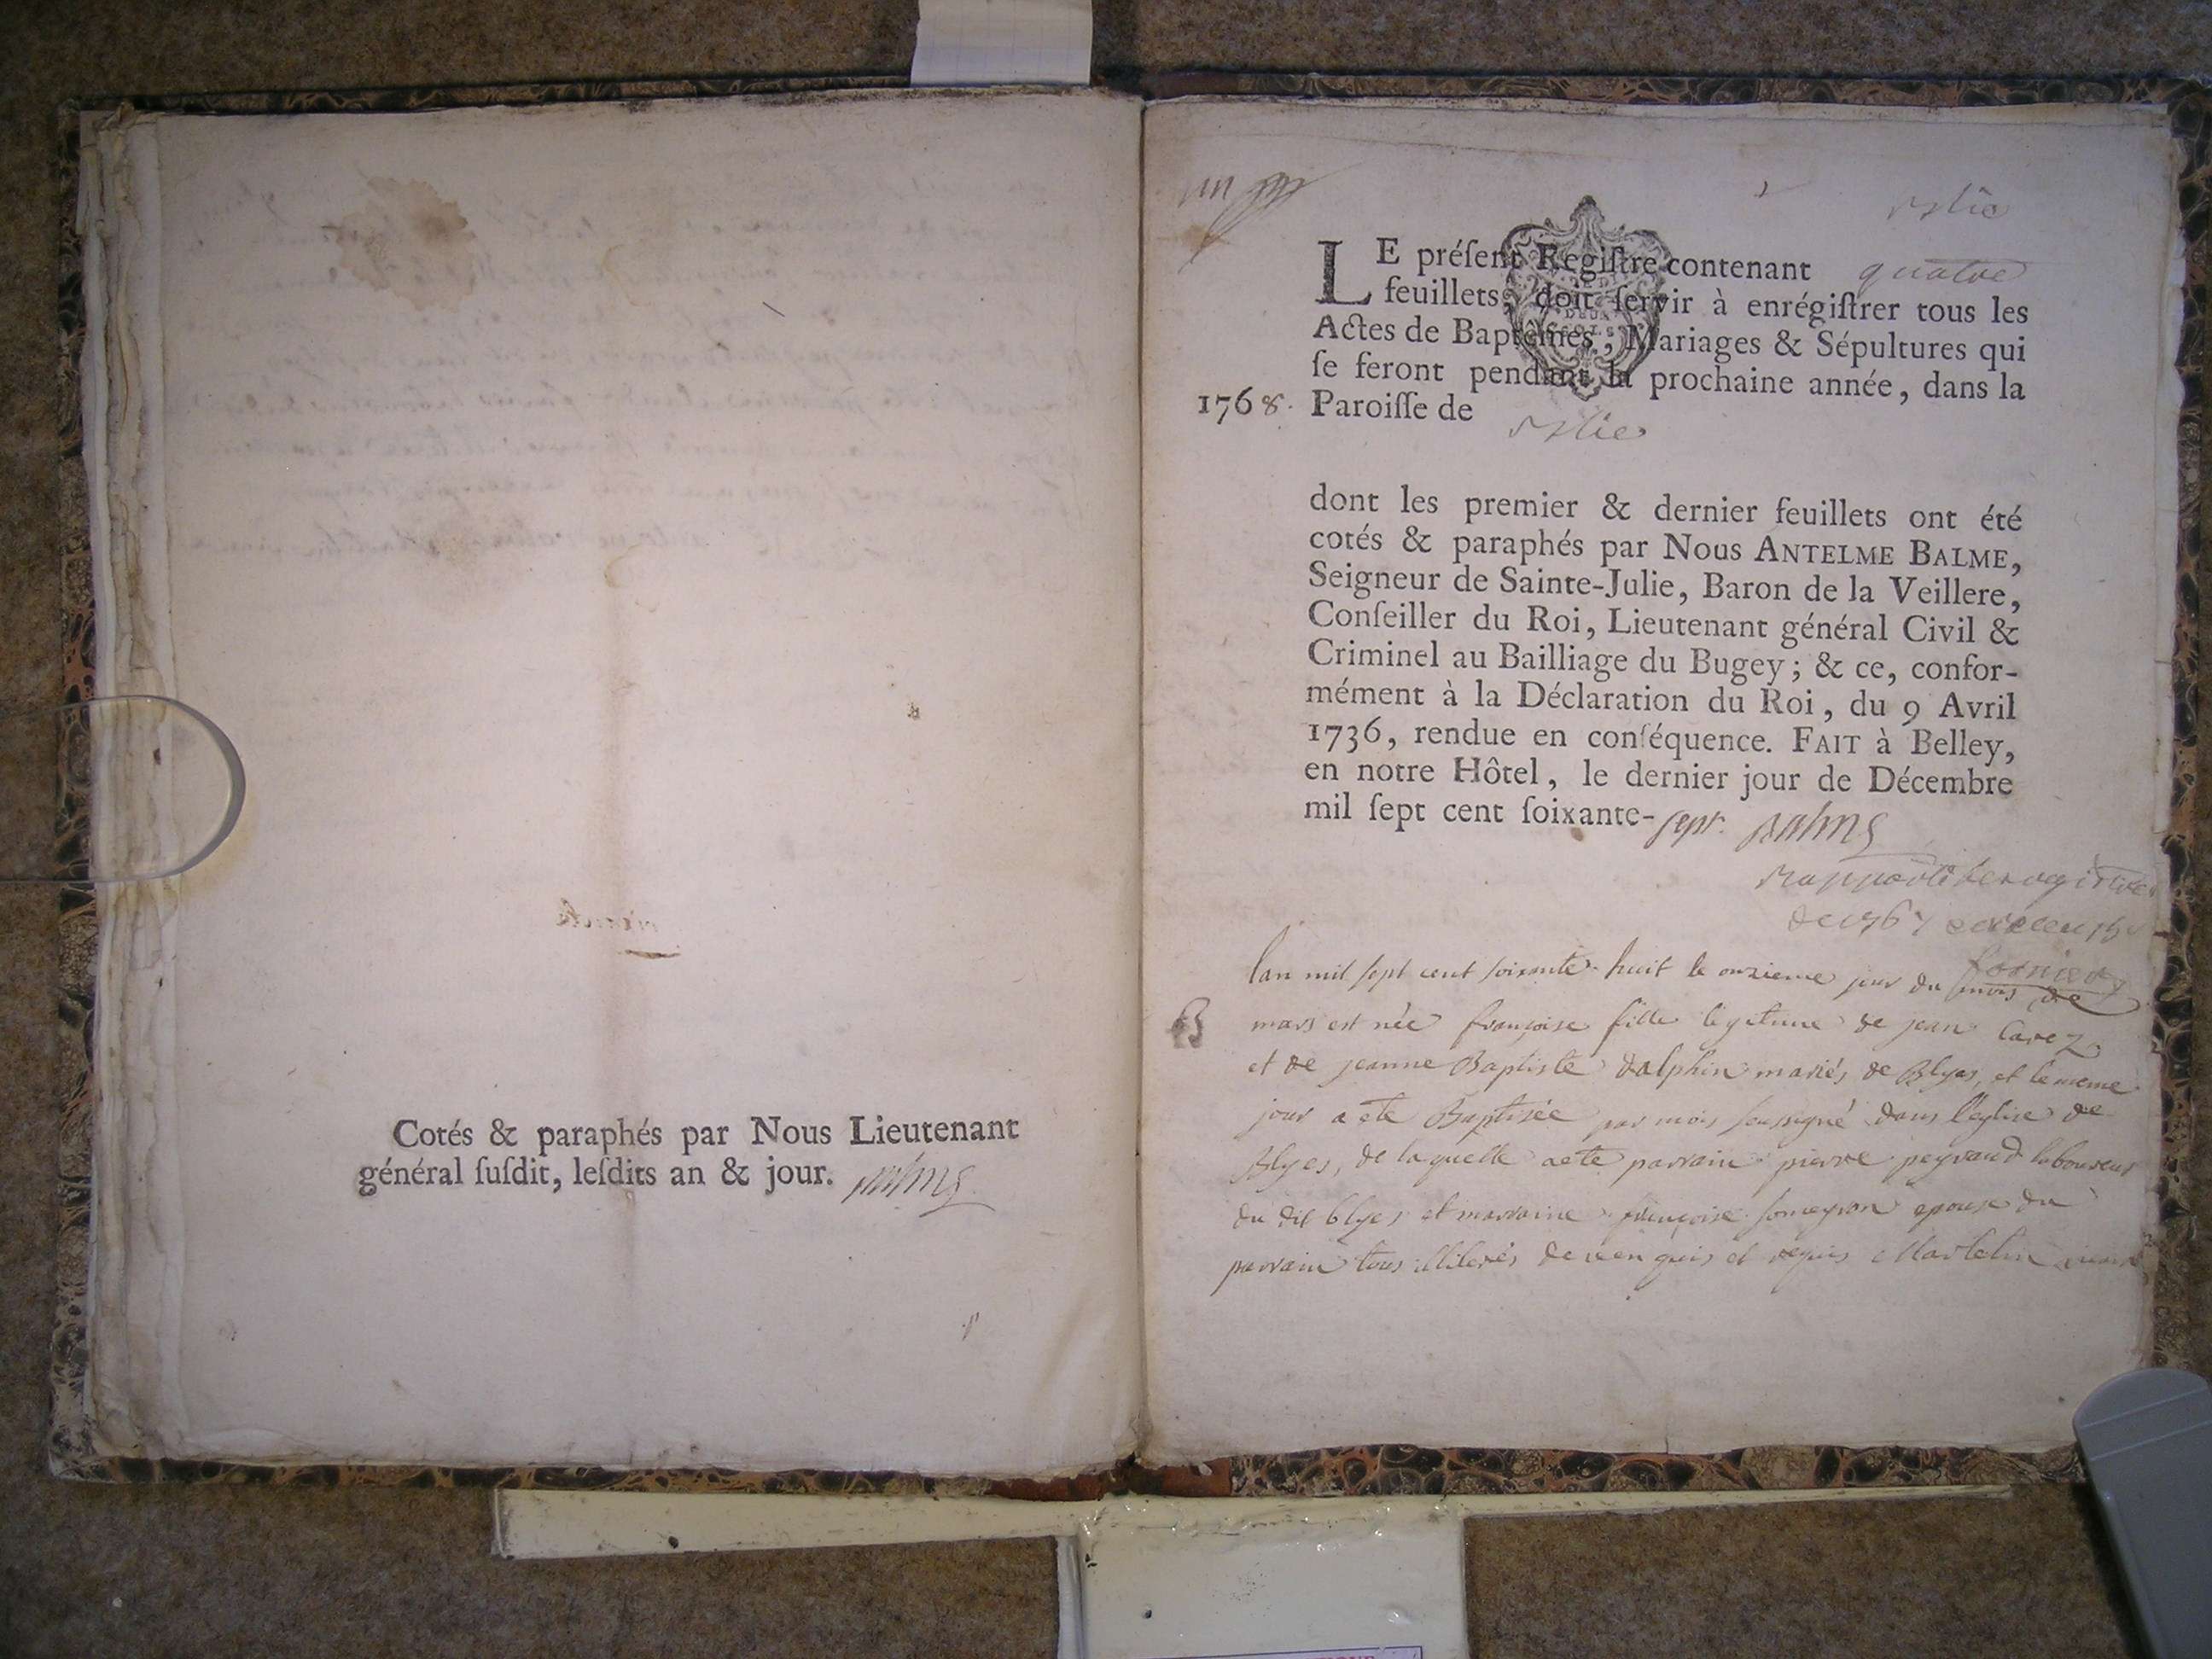 Cotés & paraphés par Nous Lieutenant
général ſuſdit, leſdits an & jour. Balme
un
LE préſent Regiſtre contenant quatre
feuillets, doit ſervir à enrégiſtrer tous les
Actes de Baptêmes, Mariages & Sépultures qui
ſe feront pendant la prochaine année, dans la
1768. Paroiſſe de
dont les premier & dernier feuillets ont été
cotés & paraphés par Nous ANTELME BALME,
Seigneur de Sainte-Julie, Baron de la Veillere,
Conſeiller du Roi, Lieutenant général Civil &
Criminel au Bailliage du Bugey; & ce, confor-
mément à la Déclaration du Roi, du 9 Avril
1736, rendue en conſéquence. FAIT à Belley,
en notre Hôtel, le dernier jour de Décembre
mil ſept cent ſoixante-sept. Balme
rapporté le registre
de 1767
lan mil sept cent soixante huit le onzieme jour du mois de
B mars est née françoise fille legitime de jean Carez
et de jeanne Baptiste dalphin mariés de Blyes, et le meme
jour a ete Baptisée par moi soussigné dans l'eglise de
Blyes, de laquelle a ete parrain pierre peyraud laboureur
du dit blyes et marraine françoise someyron epouse du
parrain tous illiterés de ce enquis et requis Martelin